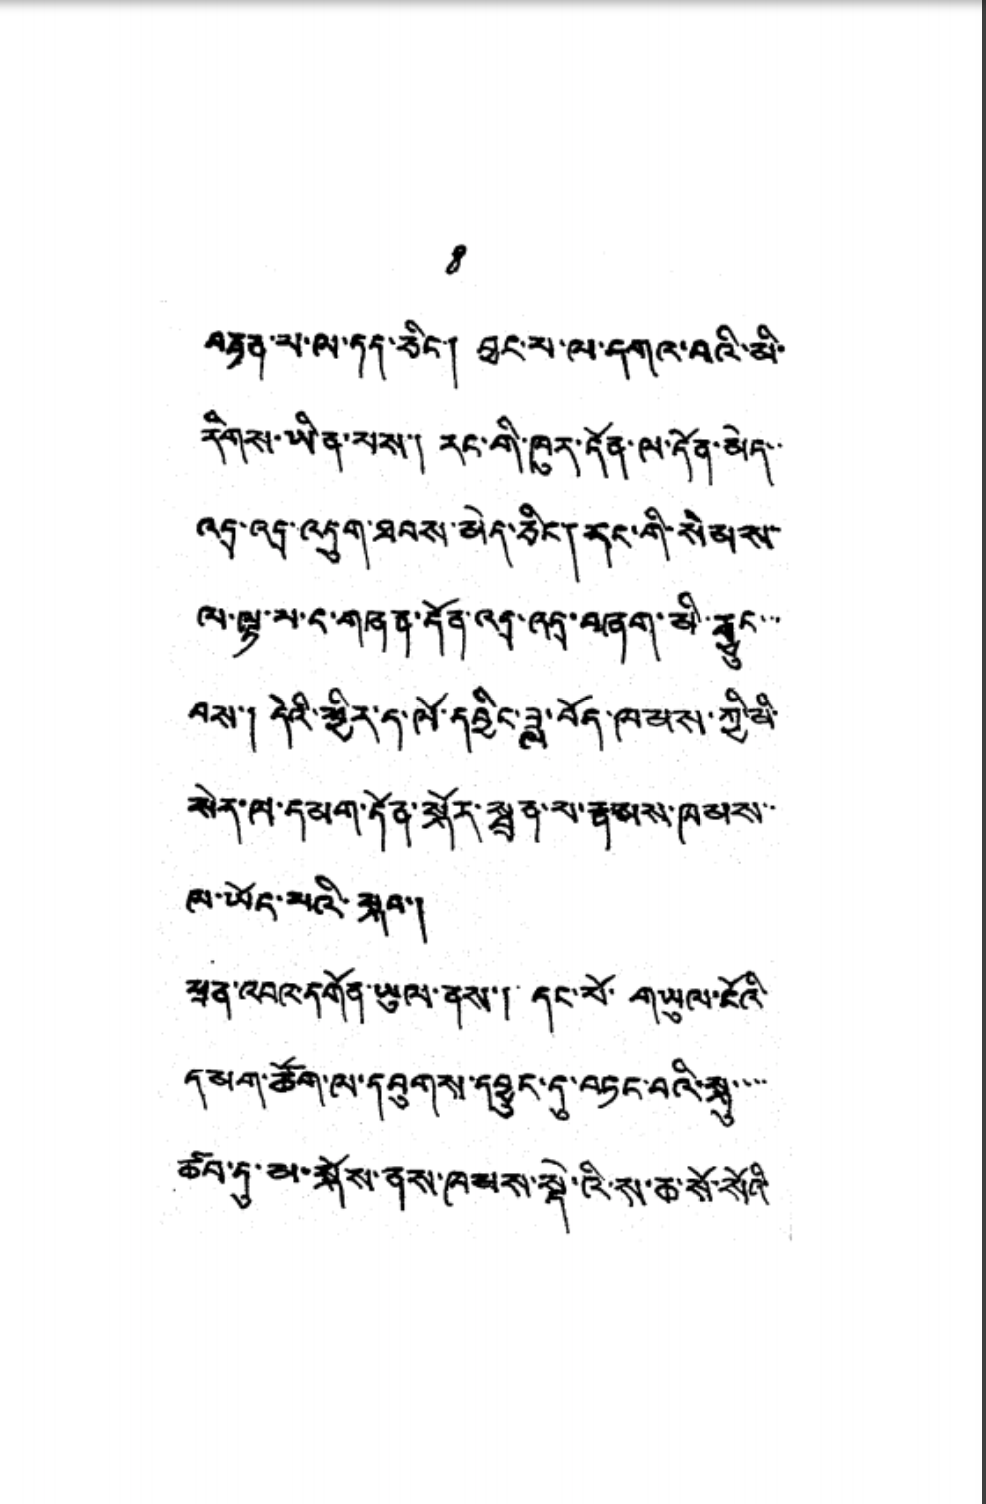 ༨
བརྟན་པ་ལ་དད་ཅིང་། བྱང་པ་ལ་དགའ་བའི་མི་
རིགས་ཡིན་པས། རང་གི་ཁུར་དོན་ལ་དོན་མེད་
འདྲ་འདྲ་འདུག་ཐབས་མེད་ཅིང་། རང་གི་སེམས་
ལ་ལྟ་ས་ད་གཞན་དོན་འདྲ་འདྲ་བཞག་མི་རུང་
བས། དེའི་ཕྱིར་ད་ལོ་དབྱིང་ཟླ་བོད་ཁམས་ཀྱི་མི་
སེར་ལ་དམག་དོན་སྐོར་སྨྲན་པ་རྣམས་ཁམས་
ལ་ཡོད་པའི་སྐབ།
སྤྲན་འབའ་དགོན་ཡུལ་ནས། དང་པོ་ གཡུལ་ངོའི་
དམག་ཚོག་ལ་དབུགས་དབྱུང་དུ་བཏང་བའི་སྐུ་
ཚབ་དུ་མ་སྐོས་ནས་ཁམས་སྡེ་འི་ས་ཆ་སོ་སོའི་